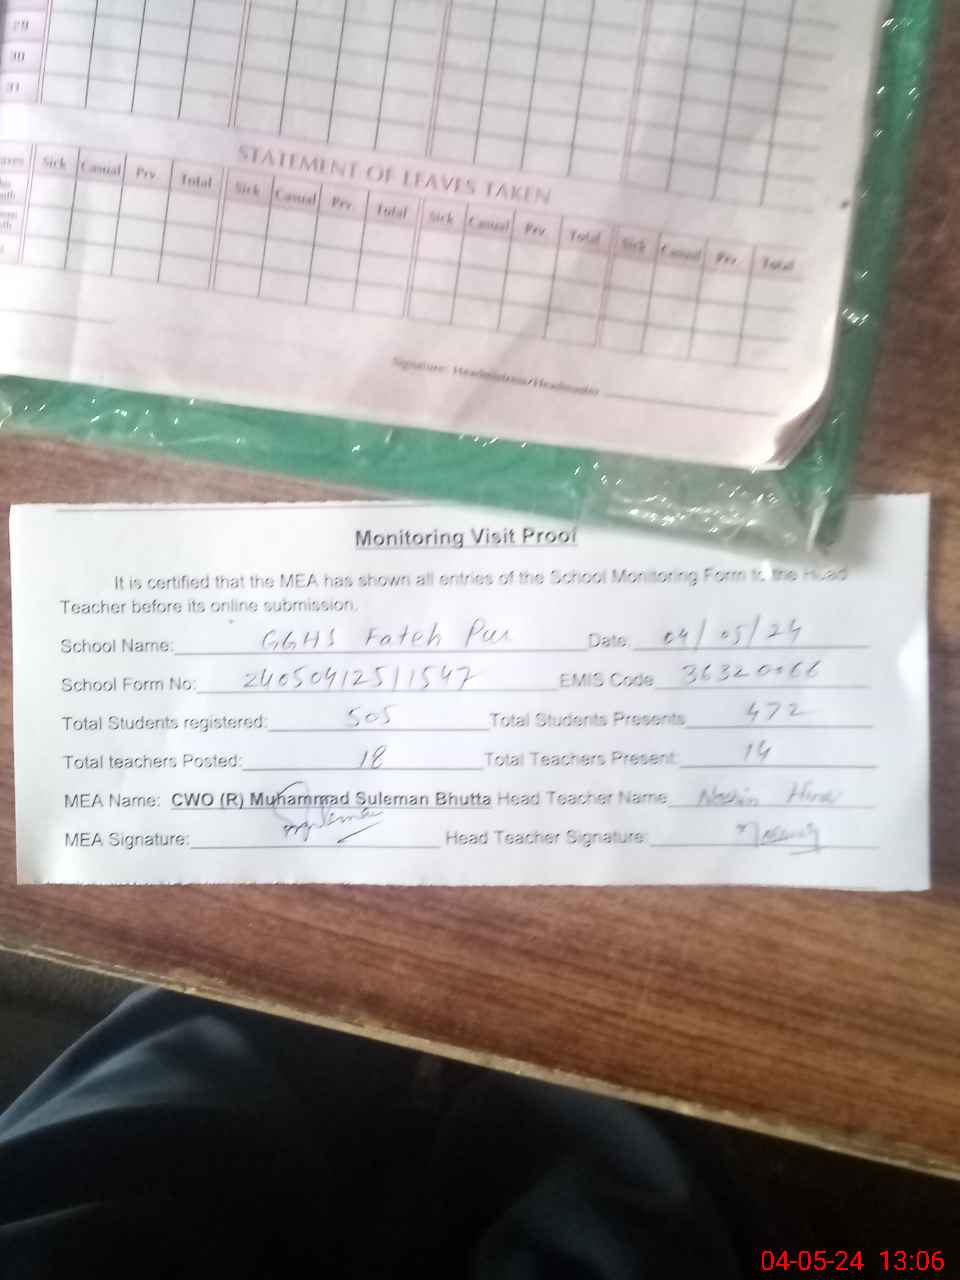 29
30
31
STATEMENT OF LEAVES TAKEN
Sick Casual Prv. Total Sick Casual Prv. Total Sick Casual Prv. Total Sick Casual Prv. Total
Signature: Headmistress/Headmaster
Monitoring Visit Proof
It is certified that the MEA has shown all entries of the School Monitoring Form to the Head
Teacher before its online submission.
School Name: GGHS Fateh Pur Date: 04/05/24
School Form No: 24050412511547 EMIS Code 36320066
Total Students registered: 505 Total Students Presents 472
Total teachers Posted: 18 Total Teachers Present: 14
MEA Name: CWO (R) Muhammad Suleman Bhutta Head Teacher Name
MEA Signature: Head Teacher Signature:
04-05-24 13:06